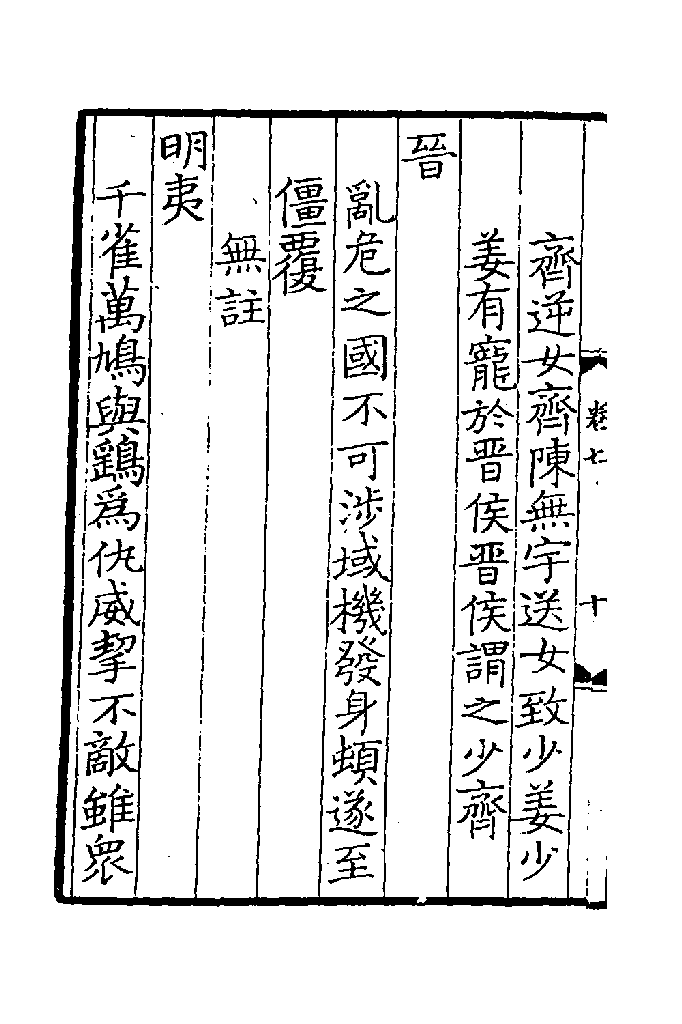 卷七
十
齊逆女齊陳無宇送女致少姜少
姜有寵於晋侯晋侯謂之少齊
晉
亂危之國不可涉域機發身頓遂至
僵覆
無註
明夷
千雀萬鳩與鷂爲仇威擊不敵雖衆